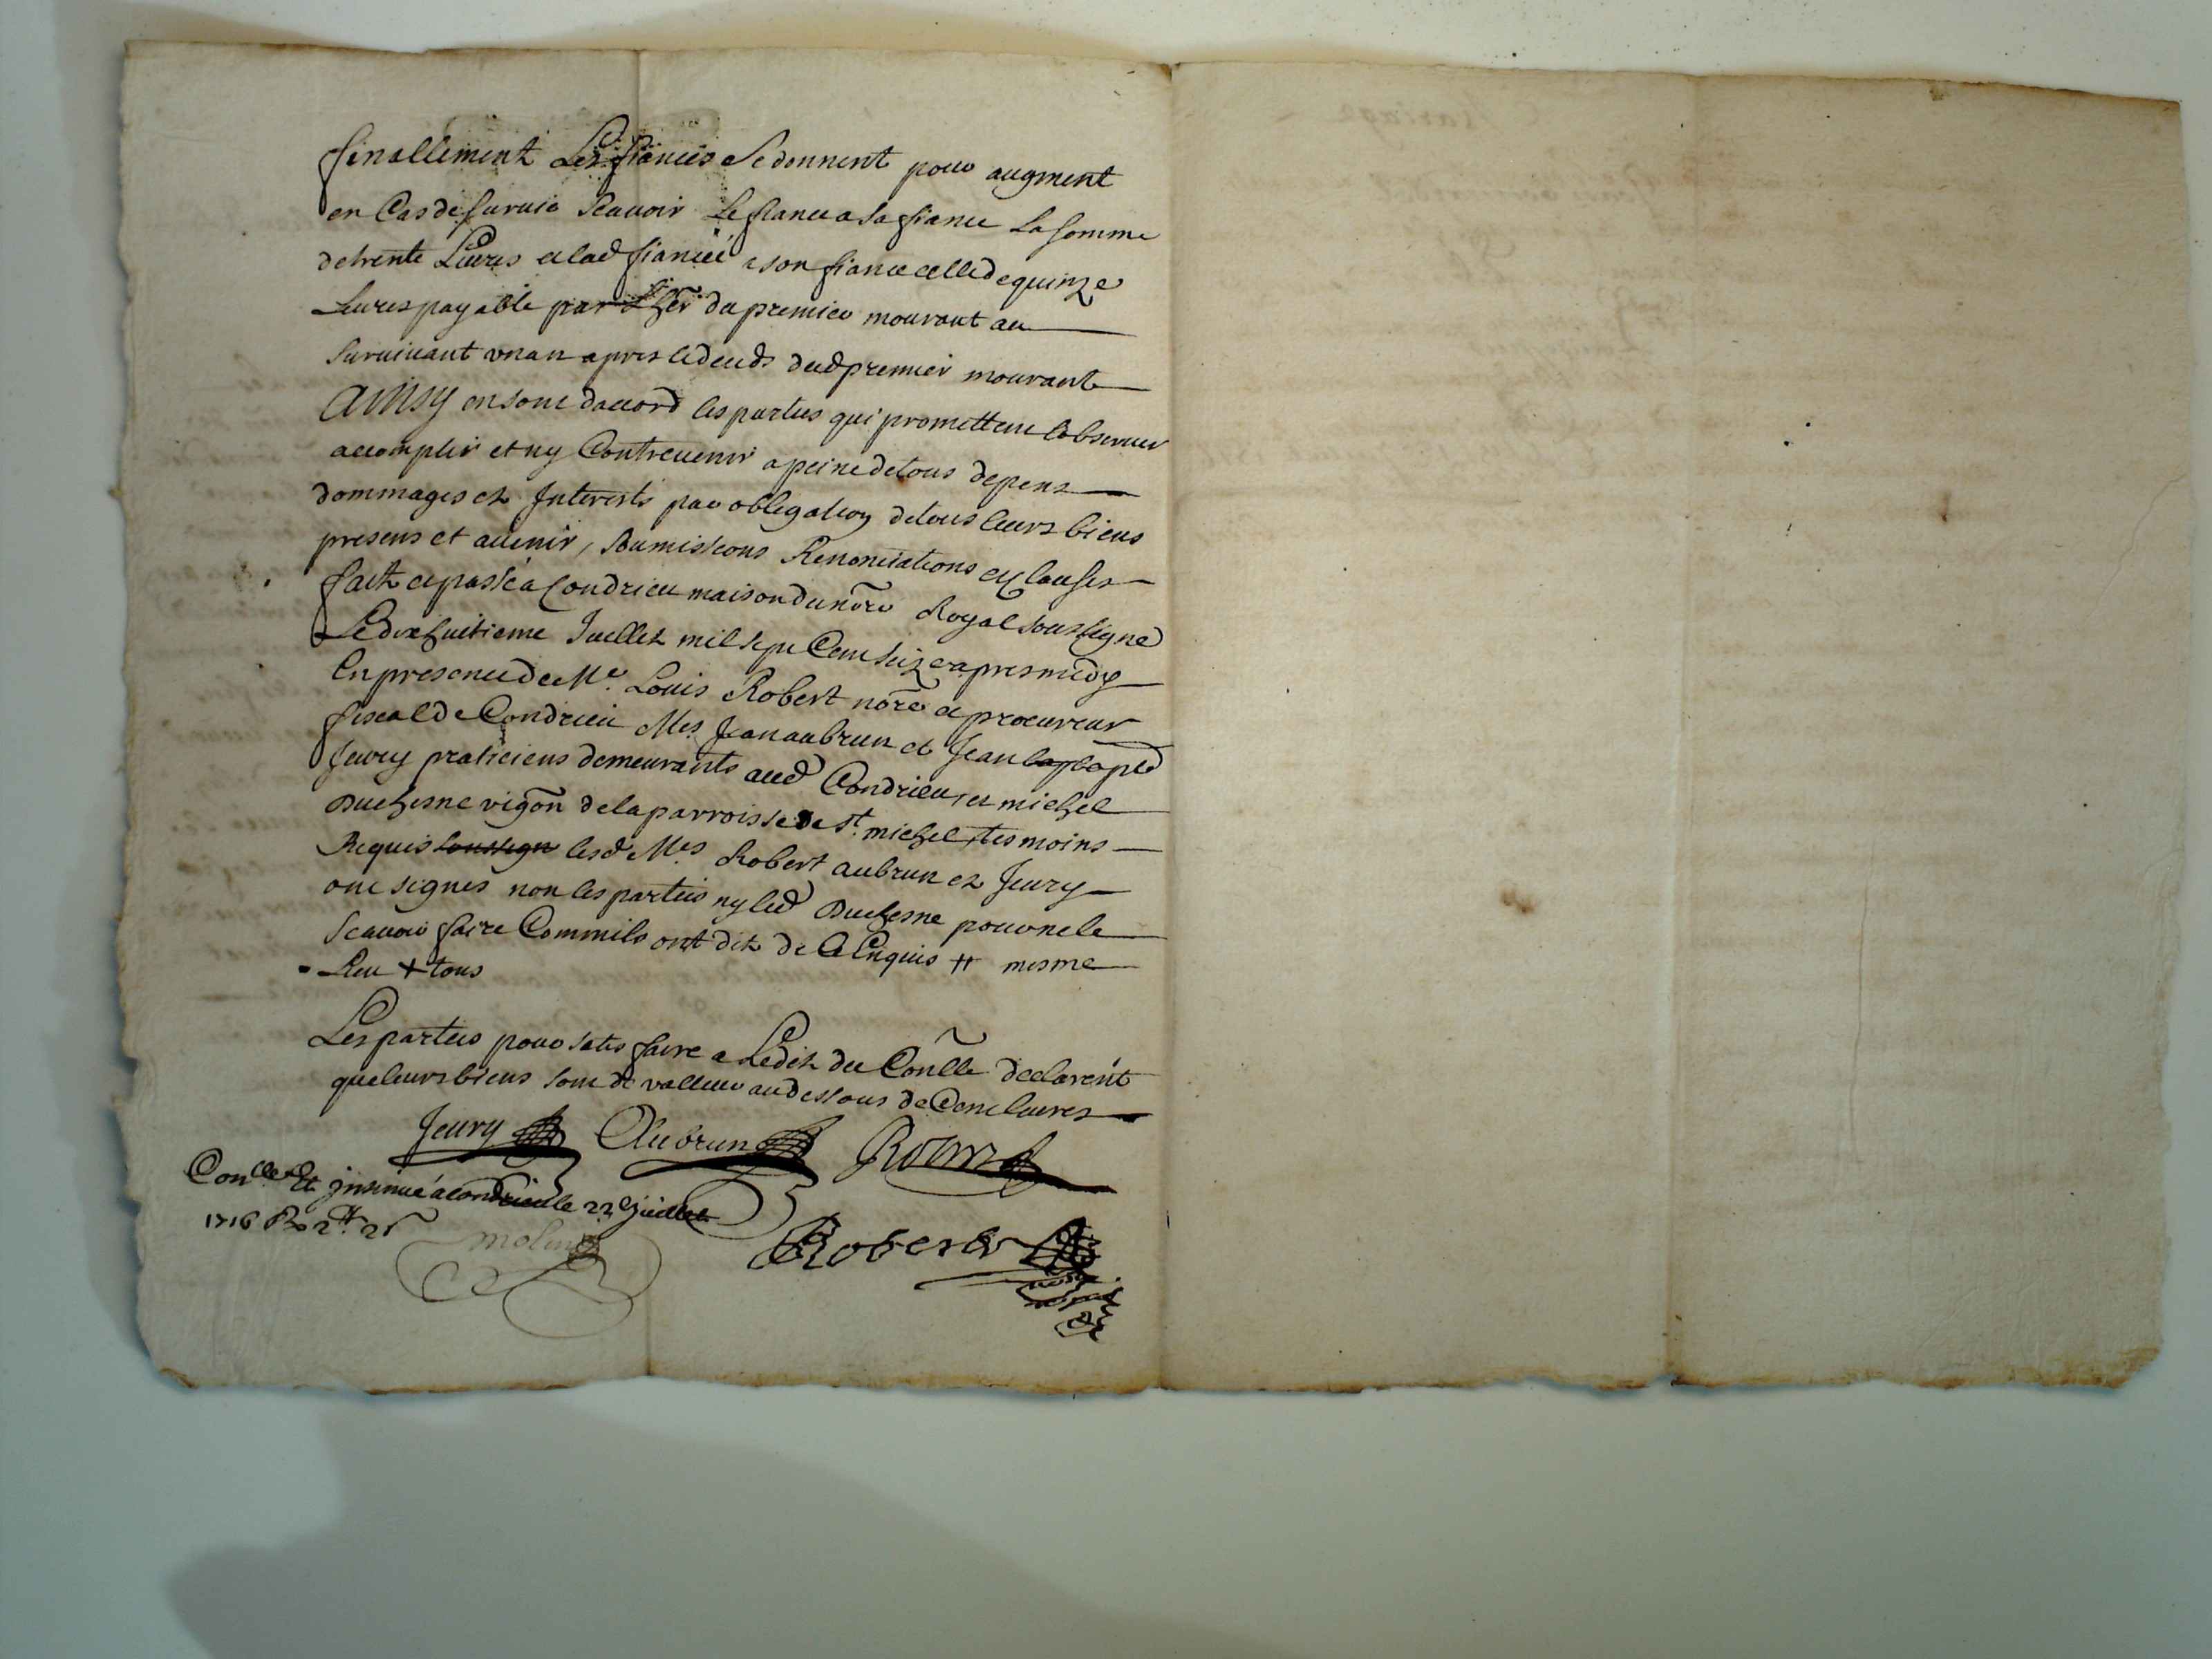 finallement Les fiancés Se donnent pour augment
en Cas de survie Scavoir Le fiancé a sa fiancé La somme
de trente Livres et lad fianceé a son fiancé celle de quinze
Livres payable par lher du premier mourant au
survivant un an apres le deceds dud premier mourant
Ainsy en sont daccord les parties qui promettent lobserver
accomplir et ny Contrevenir a peine de tous depens
dommages et Interests par obligation de tous leurs biens
presens et avenir, Soumissions Renonciations et clauses
fait et passé a Condrieu maison du nore Royal soussigné
Le dix huitieme Juillet mil sept Cent seize apres midy
En presence de Me. Louis Robert nore et procureur
fiscal de Condrieu Mes Jean aubrun et Jean bapt
Jeury praticiens demeurants aud Condrieu, et michel
Duchesne vigon de la parroisse de st. michel tesmoins
Requis soussign lesd Mes Robert aubrun et Jeury
ont signes non les parties ny led Duchesne pour ne le
Scavoir faire Comme ils ont dit de ce Enquis # mesme
Leu + tous
Les parties pour satisfaire a Ledit du Conlle declarent
que leurs biens sont de valleur au dessous de Cent livres
Jeury Aubrun Robert
Conlle Et insinué a Condrieu le 22 Juillet
1716 R 2tt
molin
Robert